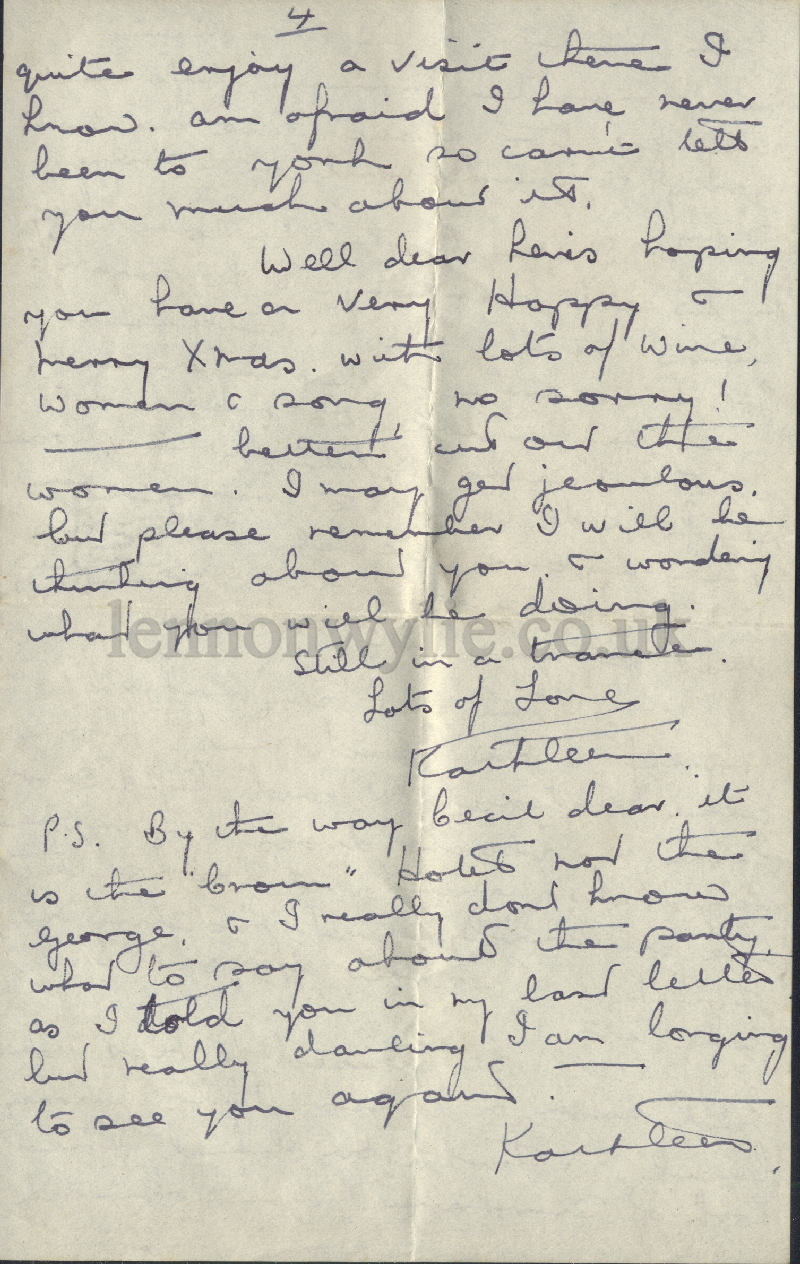 4
quite enjoy a visit there I
know. am afraid I have never
been to york so can't tell
you much about it.
Well dear here's hoping
you have a very Happy &
merry Xmas. with lots of wine,
women & song, no sorry!
better cut out the
women. I may get jeoulous.
but please remember I will be
thinking about you & wondering
what you will be doing.
Still in a trance.
Lots of Love
Kathleen.
P.S. By the way Cecil dear, it
is the "Crown" Hotel not the
george. & I really dont know
what to say about the party,
as I told you in my last letter
but really darling I am longing
to see you again.
Kathleen.
lennonwylie.co.uk